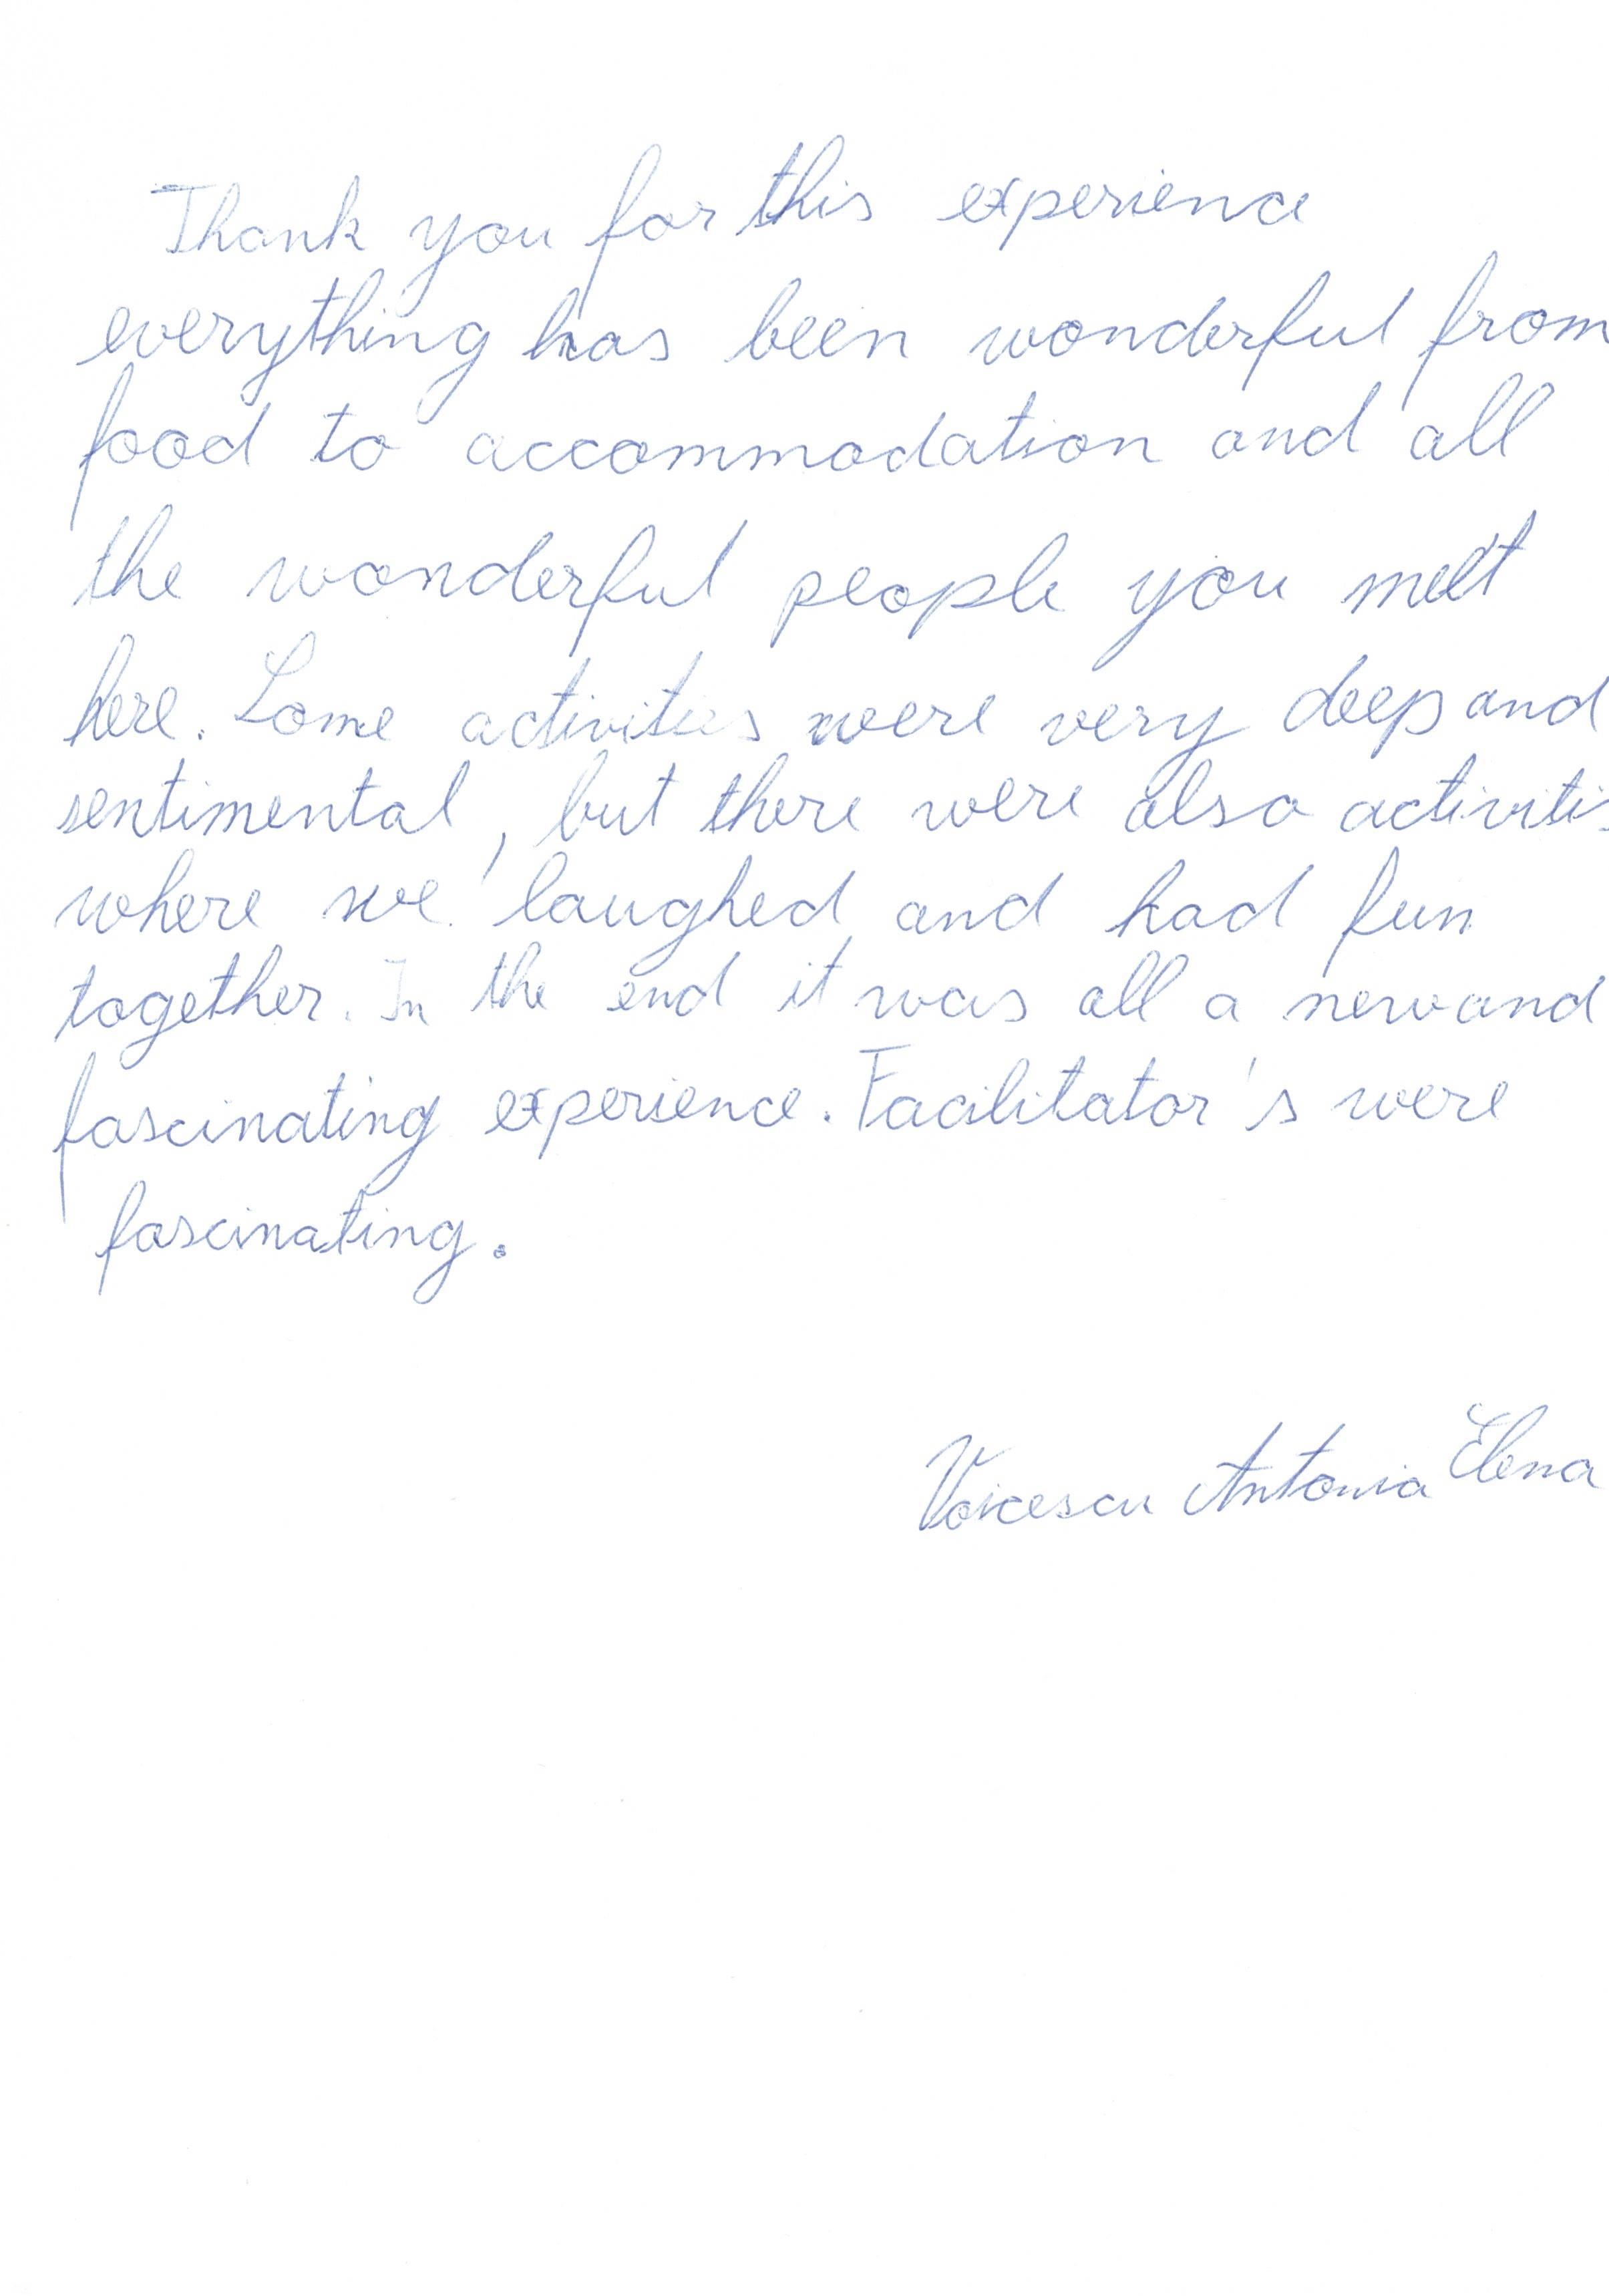 Thank you for this experience
everything has been wonderful from
food to accommodation and all
the wonderful people you met
here. Some activities were very deep and
sentimental, but there were also activitis
where we laughed and had fun
together. In the end it was all a new and
fascinating experience. Facilitator's were
fascinating.
Voicescu Antonia Elena